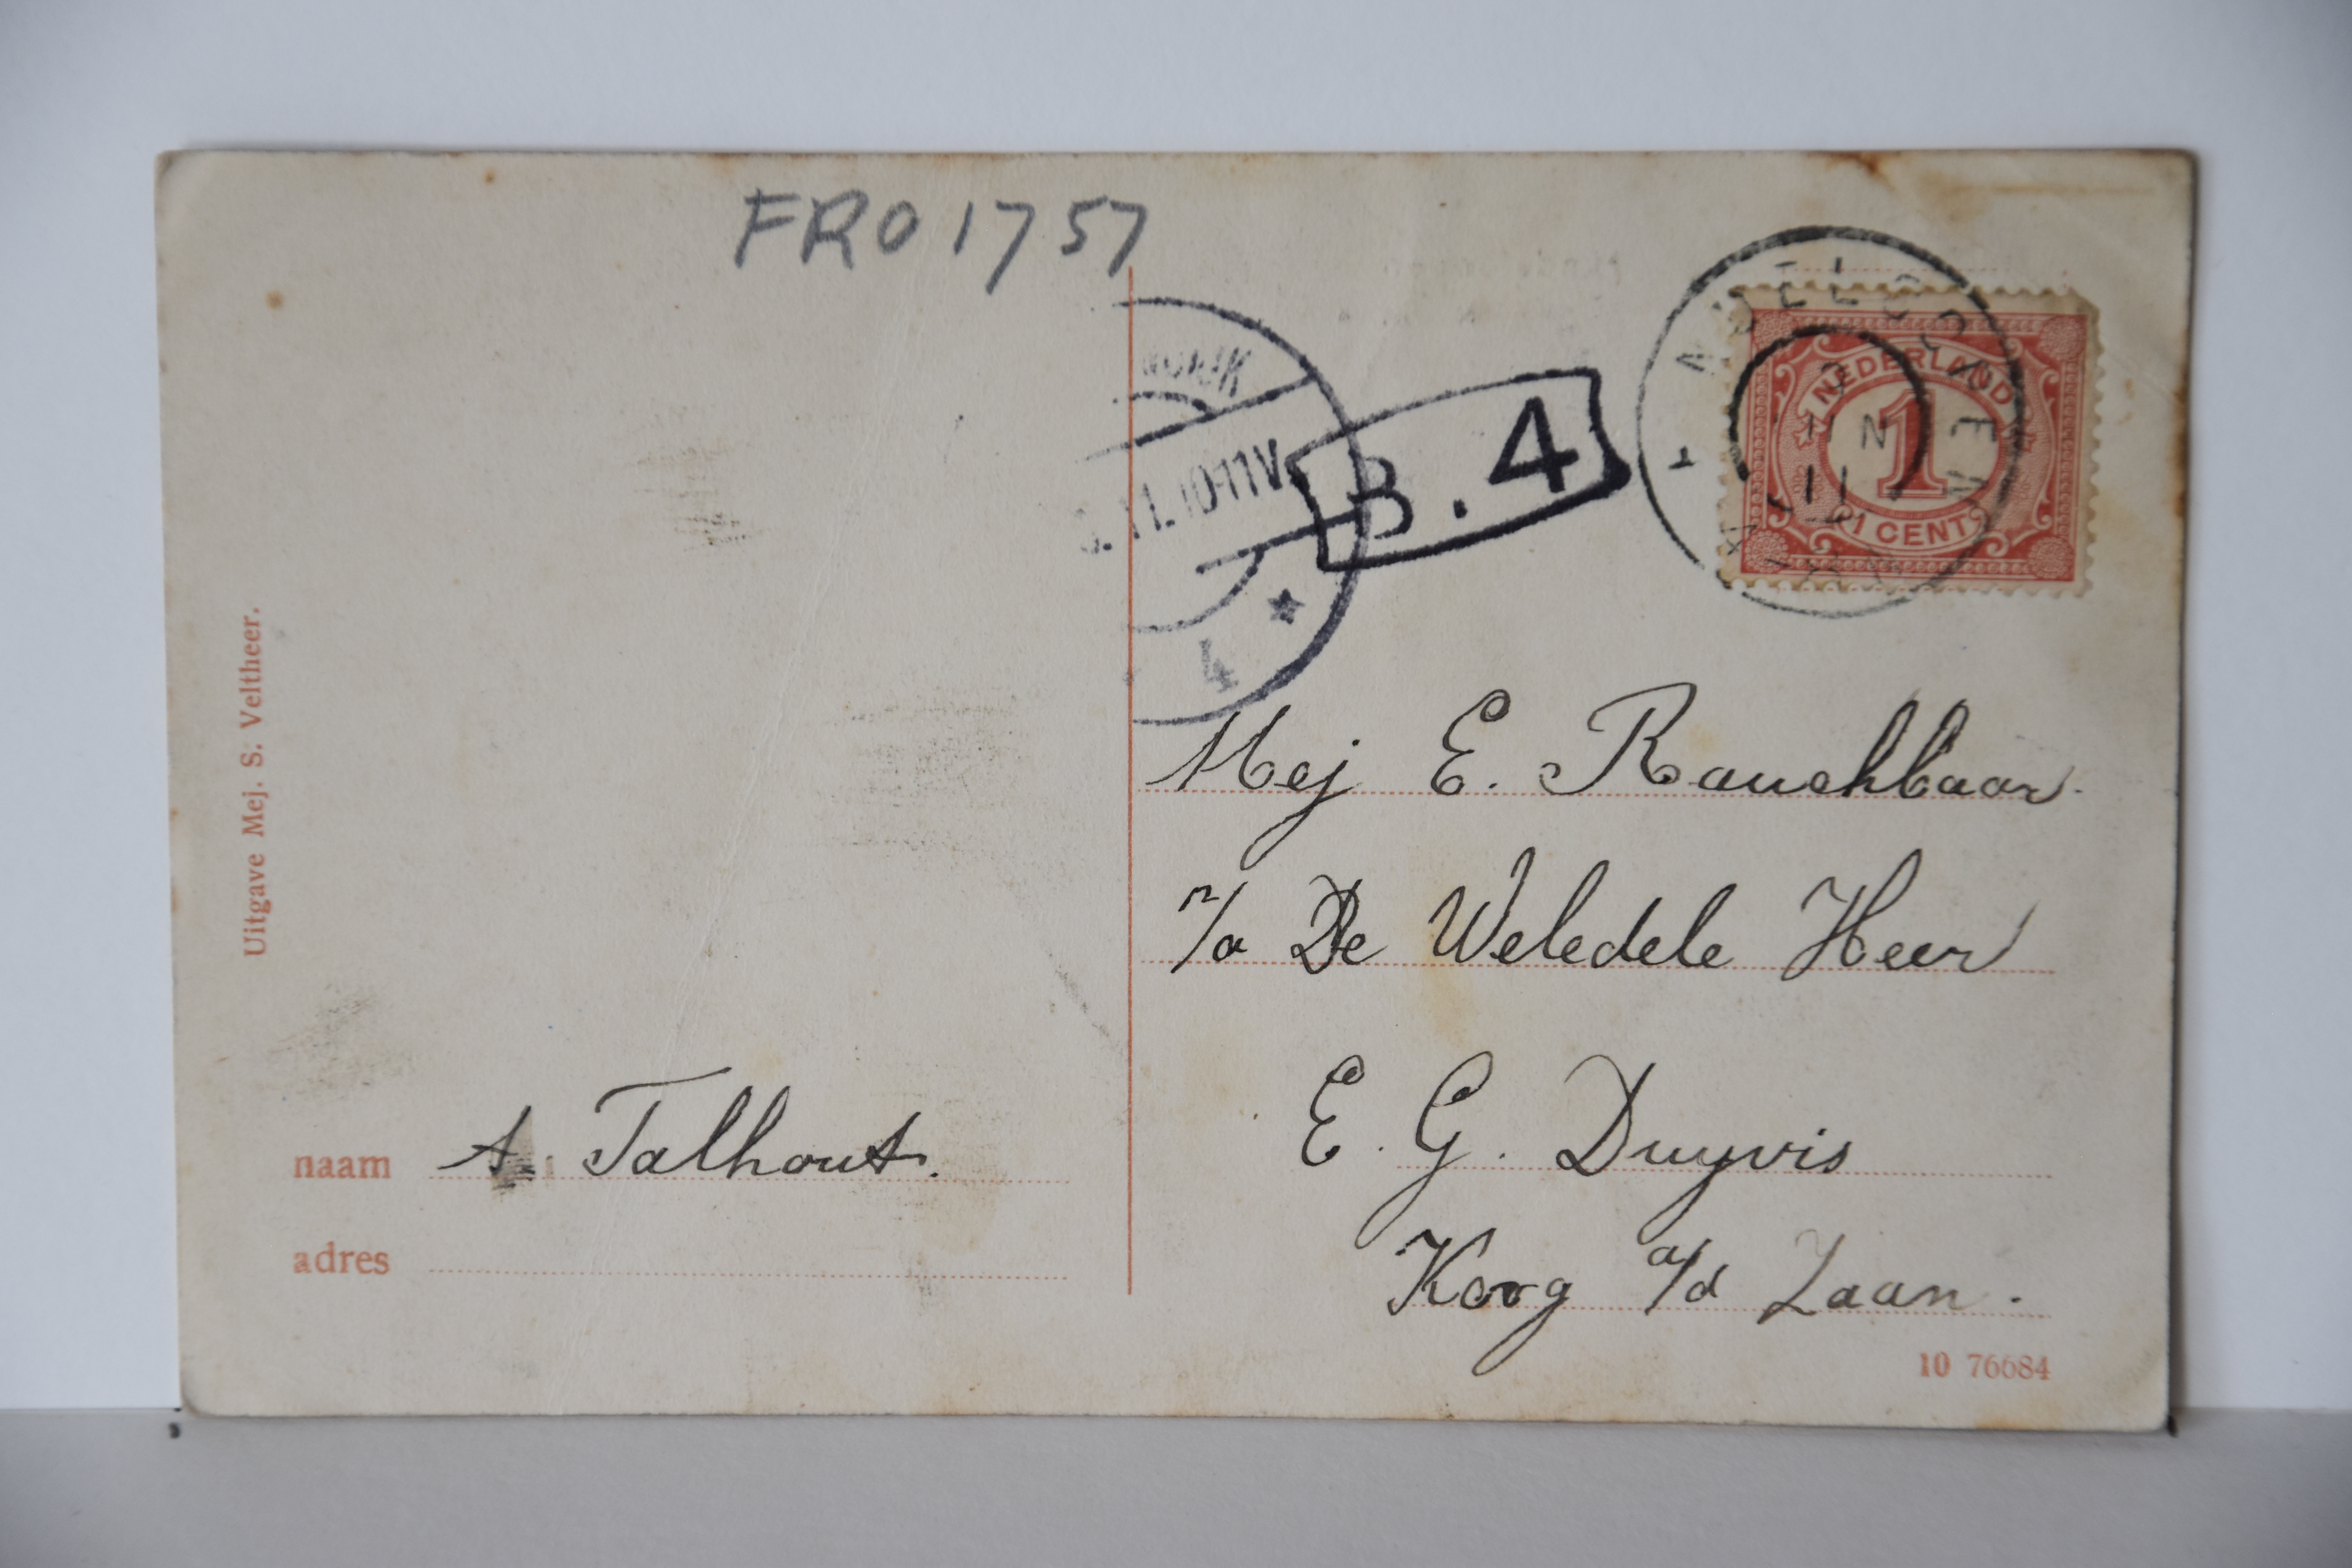 FRO 1757
NEDERLAND
1
1 CENT
11
.11.10-11V.
B. 4
4
Uitgave Mej. S. Veltheer.
Mej E. Rauchbaar.
p/a De Weledele Heer
E. G. Duyvis
Koog a/d Zaan.
naam A. Talhout.
adres
10 76684